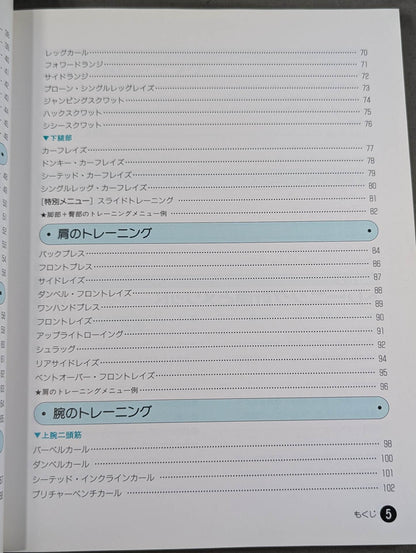 レッグカール 70
フォワードランジ 71
サイドランジ 72
プローン・シングルレッグレイズ 73
ジャンピングスクワット 74
ハックスクワット 75
シシースクワット 76
▼下腿部
カーフレイズ 77
ドンキー・カーフレイズ 78
シーテッド・カーフレイズ 79
シングルレッグ・カーフレイズ 80
[特別メニュー] スライドトレーニング 81
★脚部+臀部のトレーニングメニュー例 82
肩のトレーニング
バックプレス 84
フロントプレス 86
サイドレイズ 87
ダンベル・フロントレイズ 88
ワンハンドプレス 89
フロントレイズ 90
アップライトローイング 91
シュラッグ 92
リアサイドレイズ 94
ベントオーバー・フロントレイズ 95
★肩のトレーニングメニュー例 96
腕のトレーニング
▼上腕二頭筋
バーベルカール 98
ダンベルカール 100
シーテッド・インクラインカール 101
プリチャーベンチカール 102
もくじ 5